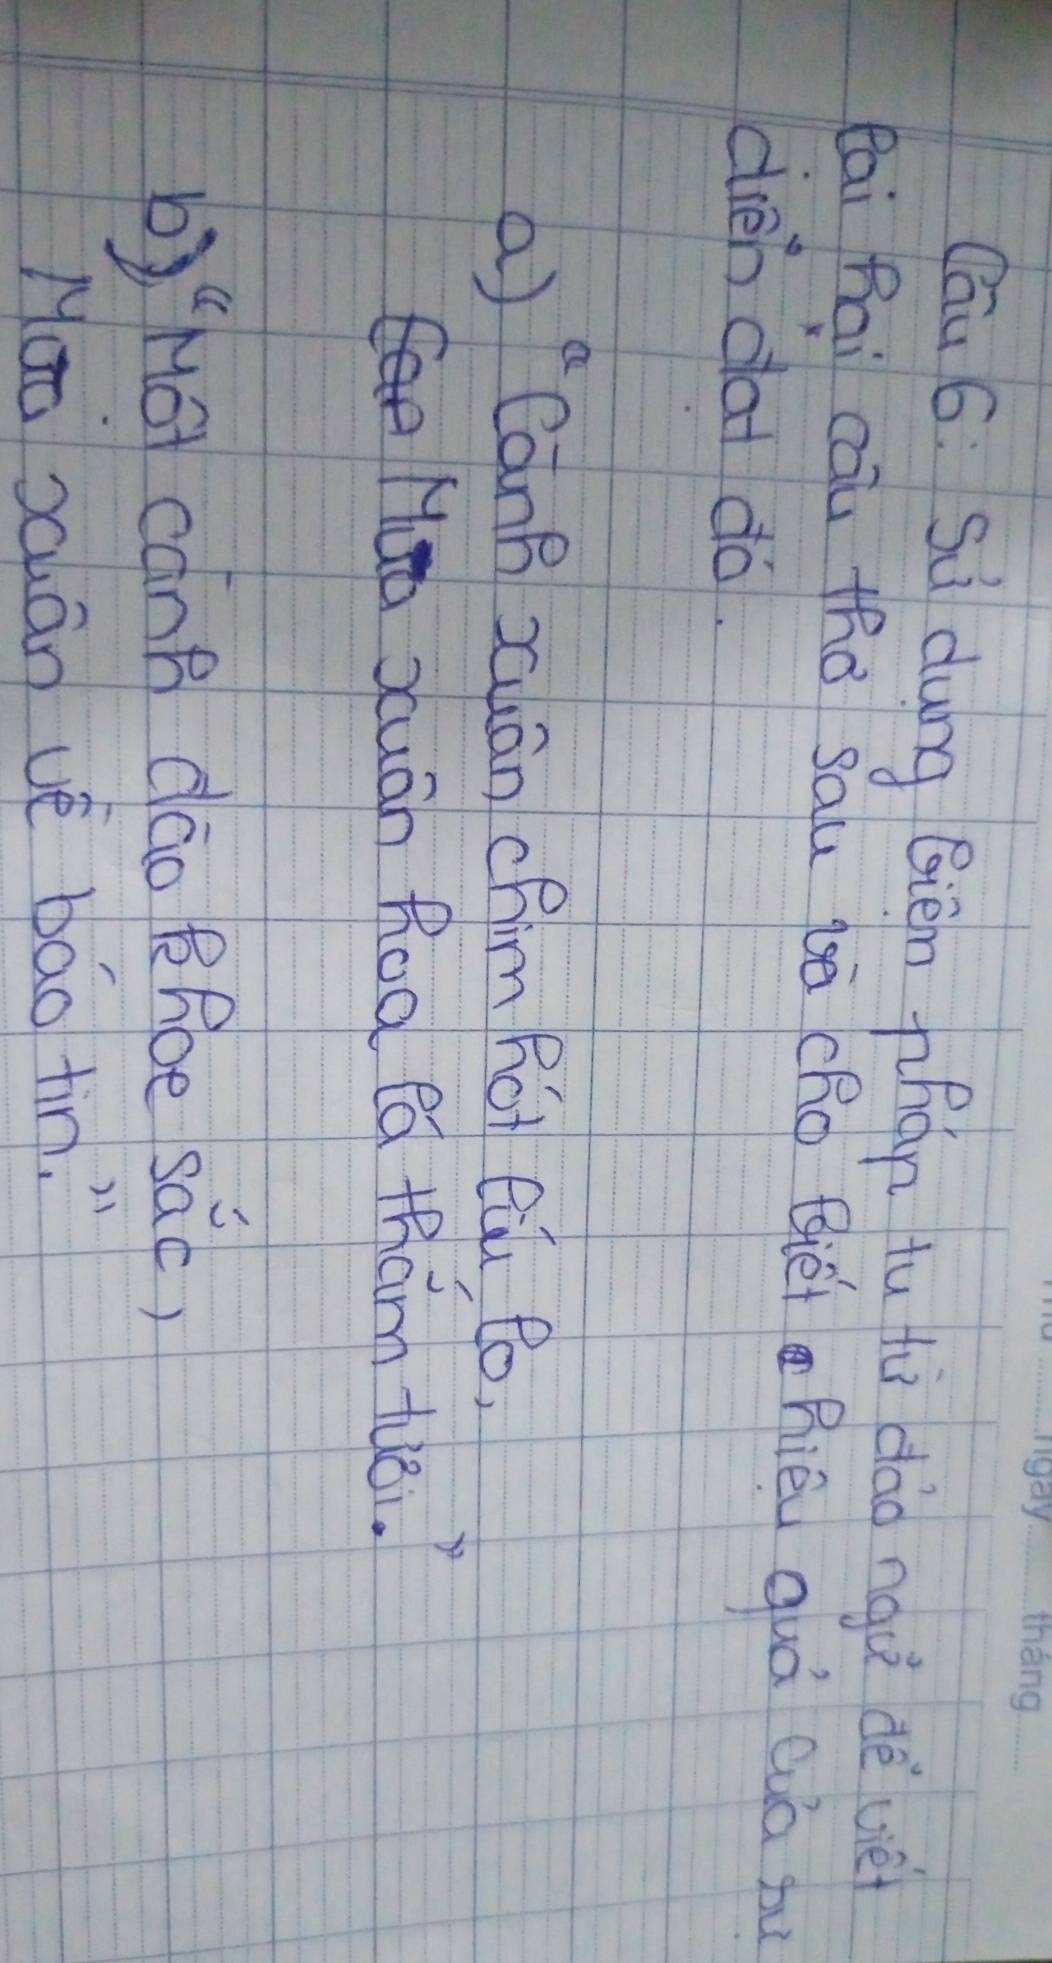 Câu 6: Sử dụng biện pháp tu từ đảo ngữ để viết
lại hại câu thơ sau và cho biết hiệu quả của sự
diễn đạt đó.
a) "Cành xuân chim hót líu lo,
Mùa xuân hoa lá thắm tươi."
b) "Một cành đào khoe sắc,
Mùa xuân về báo tin."
ngày tháng